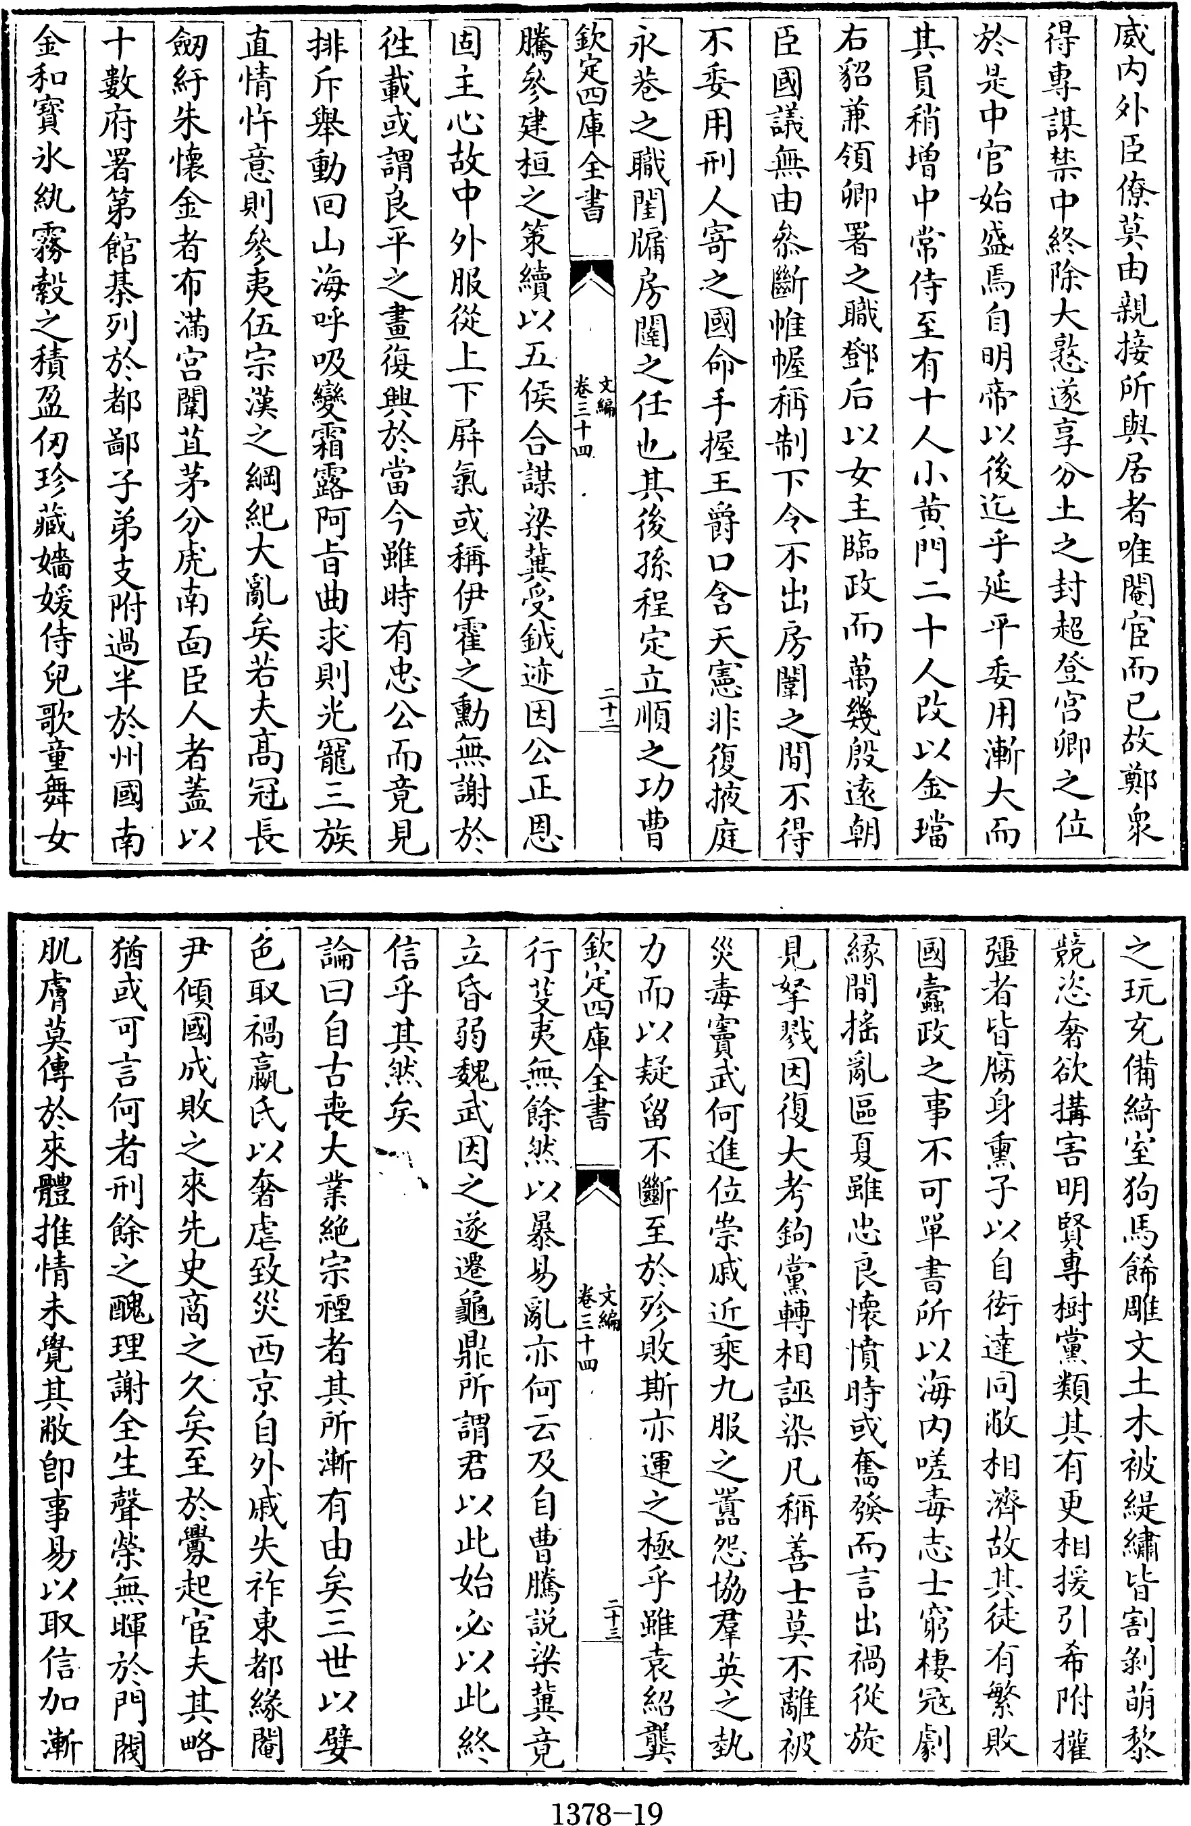 威内外臣僚莫由親接所與居者唯閹宦而已故鄭衆
得專謀禁中終除大憝遂享分土之封超登宫卿之位
於是中官始盛焉自明帝以後迄乎延平委用漸大而
其員稍增中常侍至有十人小黄門二十人改以金璫
右貂兼領卿署之職鄧后以女主臨政而萬幾殷逺朝
臣國議無由叅斷帷幄稱制下令不出房闈之間不得
不委用刑人寄之國命手握王爵口含天憲非復掖庭
永巷之職閨牖房闥之任也其後孫程定立順之功曹
欽定四庫全書
文編
卷三十四
二十二
騰參建桓之策續以五侯合謀梁冀受鉞迹因公正恩
固主心故中外服從上下屏氣或稱伊霍之勳無謝於
徃載或謂良平之畫復興於當今雖時有忠公而竟見
排斥舉動回山海呼吸變霜露阿旨曲求則光寵三族
直情忤意則參夷伍宗漢之綱紀大亂矣若夫髙冠長
劒紆朱懷金者布滿宫闈苴茅分虎南面臣人者蓋以
十數府署第館棊列於都鄙子弟支附過半於州國南
金和寳氷紈霧縠之積盈仞珍藏嬙媛侍兒歌童舞女
之玩充備綺室狗馬餙雕文土木被緹繡皆割剝萌黎
競恣奢欲搆害明賢專樹黨類其有更相援引希附權
彊者皆腐身熏子以自衒達同敝相濟故其徒有繁敗
國蠧政之事不可單書所以海内嗟毒志士窮棲寇劇
緣間揺亂區夏雖忠良懷憤時或奮發而言出禍從旋
見孥戮因復大考鉤黨轉相誣染凡稱善士莫不離被
災毒竇武何進位崇戚近乘九服之嚚怨協羣英之埶
力而以疑留不斷至於殄敗斯亦運之極乎雖袁紹龔
欽定四庫全書
文編
卷三十四
二十三
行芟夷無餘然以暴易亂亦何云及自曹騰説梁冀竟
立昏弱魏武因之遂遷龜鼎所謂君以此始必以此終
信乎其然矣
論曰自古喪大業絶宗禋者其所漸有由矣三世以嬖
色取禍嬴氏以奢虐致災西京自外戚失祚東都緣閹
尹傾國成敗之來先史商之久矣至於釁起宦夫其略
猶或可言何者刑餘之醜理謝全生聲榮無暉於門閥
肌膚莫傳於來體推情未覺其敝卽事易以取信加漸
1378-19